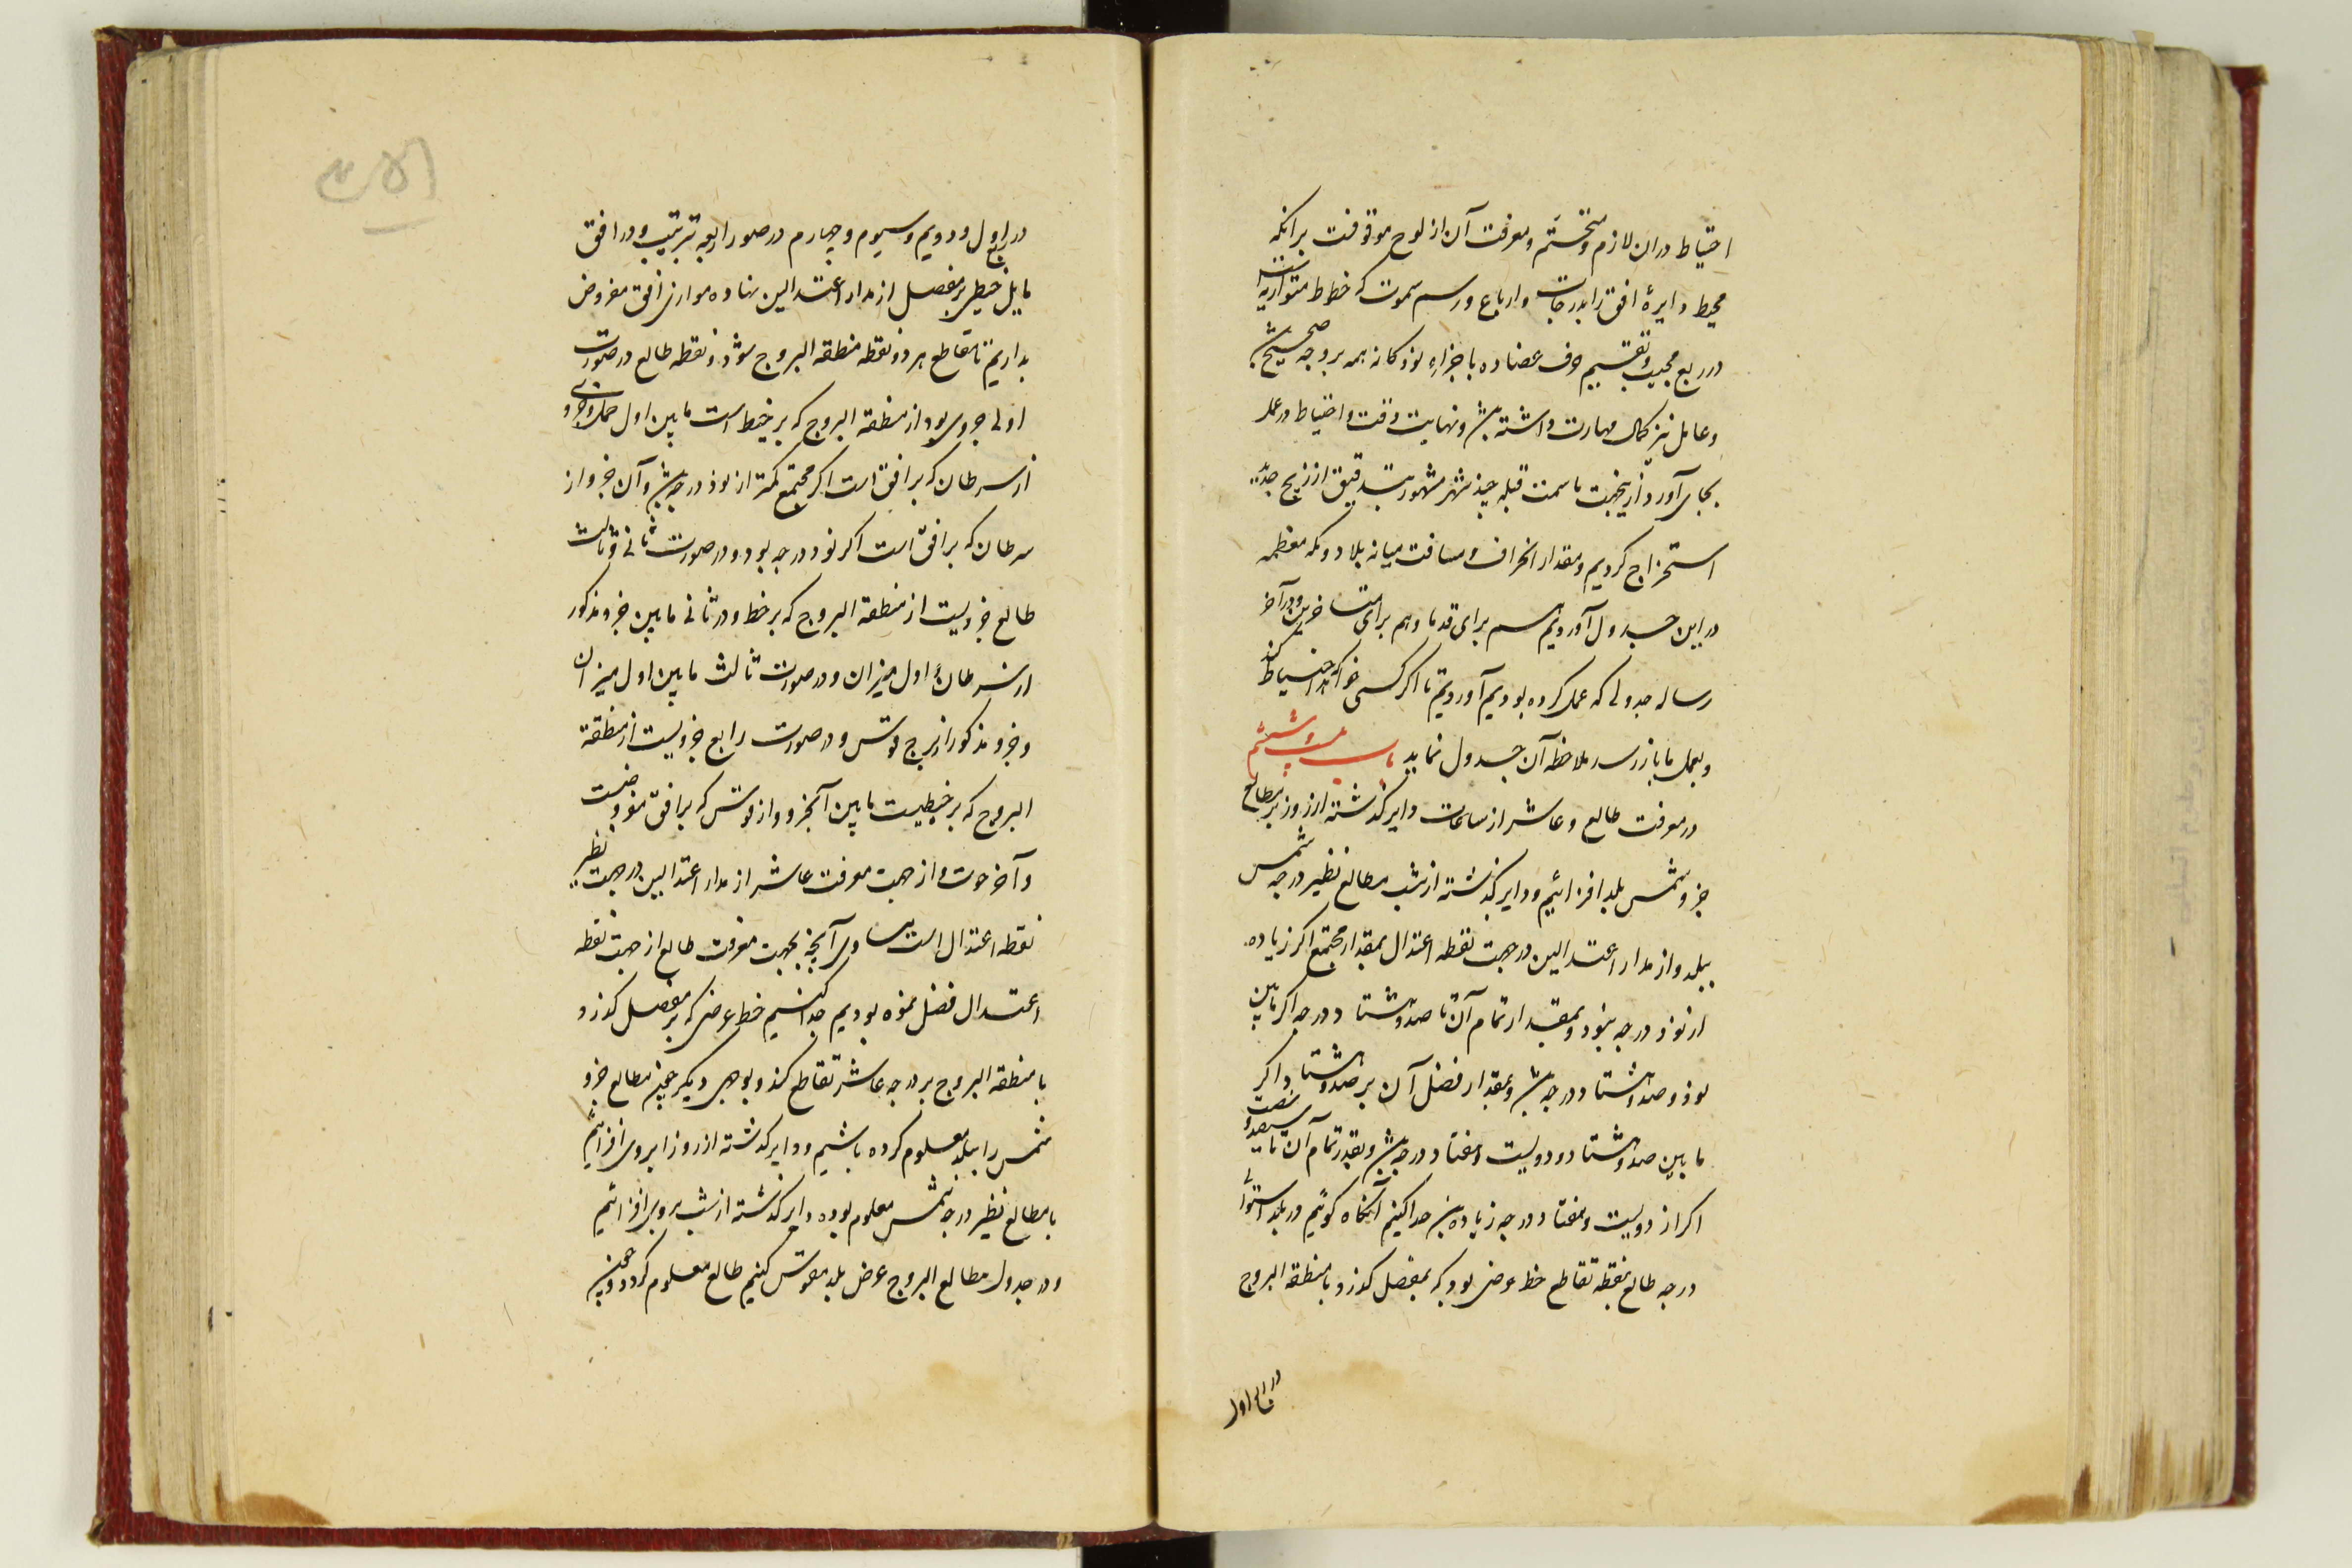 احتیاط دران لازم و متحتم و معرفت آن از لوح موقوفست برانکه
محیط دایرهٔ افق را بدرجات و ارباع و رسم سموت که خطوط متوازیه است
در ربع مجیب و تقسیم حرف عضاده باجزاء نود کانه همه بر وجه صحیح باشد
و عامل نیز کمال مهارت داشته باشد و نهایت دقت و احتیاط در عمل
بجای آورد و ازینجهت ما سمت قبله چند شهر مشهور بتدقیق از زیج جدید
استخراج کردیم و مقدار انحراف و مسافت میانه بلاد و مکه معظمه
در این جدول آوردیم هم برای قدما و هم برای متاخرین و در آخر
رساله جدولی که عمل کرده بودیم آوردیم تا اکر کسی خواهد احتیاط کند
و بعمل ما باز رسد ملاحظه آن جدول نماید باب بیست و ششم
در معرفت طالع و عاشر از ساعات دایر کذشته از روز بر مطالع
جزو شمس بلد افزائیم و دایر کذشته از شب بر مطالع نظیر درجه شمس
ببلد و از مدار اعتدالین در جهت نقطه اعتدال بمقدار مجتمع اکر زیاده
از نود درجه نبود و بمقدار تمام آن تا صد و هشتاد درجه اکر مابین
نود و صد و هشتاد درجه باشد و بمقدار فضل آن بر صد و هشتاد و اکر
مابین صد و هشتاد و دویست و هفتاد درجه باشد و بقدر تمام آن تا سیصد و شصت
اکر از دویست و هفتاد درجه زیاده باشد جدا کنیم آنکاه کوئیم در بلد استوا
درجه طالع نقطه تقاطع خط عرضی بود که بمفصل کذرد با منطقه البروج
در ربع اول
در ربع اول و دویم و سیوم و چهارم در صور اربعه بترتیب و در افق
مایل خیط بر مفصل از مدار اعتدالین نهاده موازی افق مفروض
بداریم تا تقاطع هر دو نقطه منطقه البروج شود و نقطه طالع در صورت
اولی جزوی بود از منطقه البروج که بر خیط است مابین اول حمل و جزو
از سرطان که بر افق است اکر مجتمع کمتر از نود درجه باشد و آن جزو از
سرطان که بر افق است اکر نود درجه بود و در صورت ثانی و ثالث
طالع جزویست از منطقه البروج که بر خط و در ثانی مابین جزو مذکور
از سرطان و اول میزان و در صورت ثالث مابین اول میزان
و جزو مذکور از برج قوس و در صورت رابع جزویست از منطقه
البروج که بر خیطست مابین آنجزو از قوس که بر افق مفروضست
و آخر حوت و از جهت معرفت عاشر از مدار اعتدالین در جهت نظیر
نقطه اعتدال است مساوی آنچه بجهت معرفت طالع از جهت نقطه
اعتدال فضل نموده بودیم جدا کنیم خط عرضی که بر مفصل کذرد
با منطقه البروج بر درجه عاشر تقاطع کند و بوجهی دیکر چون مطالع جزو
شمس را ببلد معلوم کرده باشیم و دایر کذشته از روز ابروی افزائیم
یا مطالع نظیر درجه شمس معلوم بوده دایر کذشته از شب بروی افزائیم
و در جدول مطالع البروج عرض بلد مقوس کنیم طالع معلوم کردد و چون